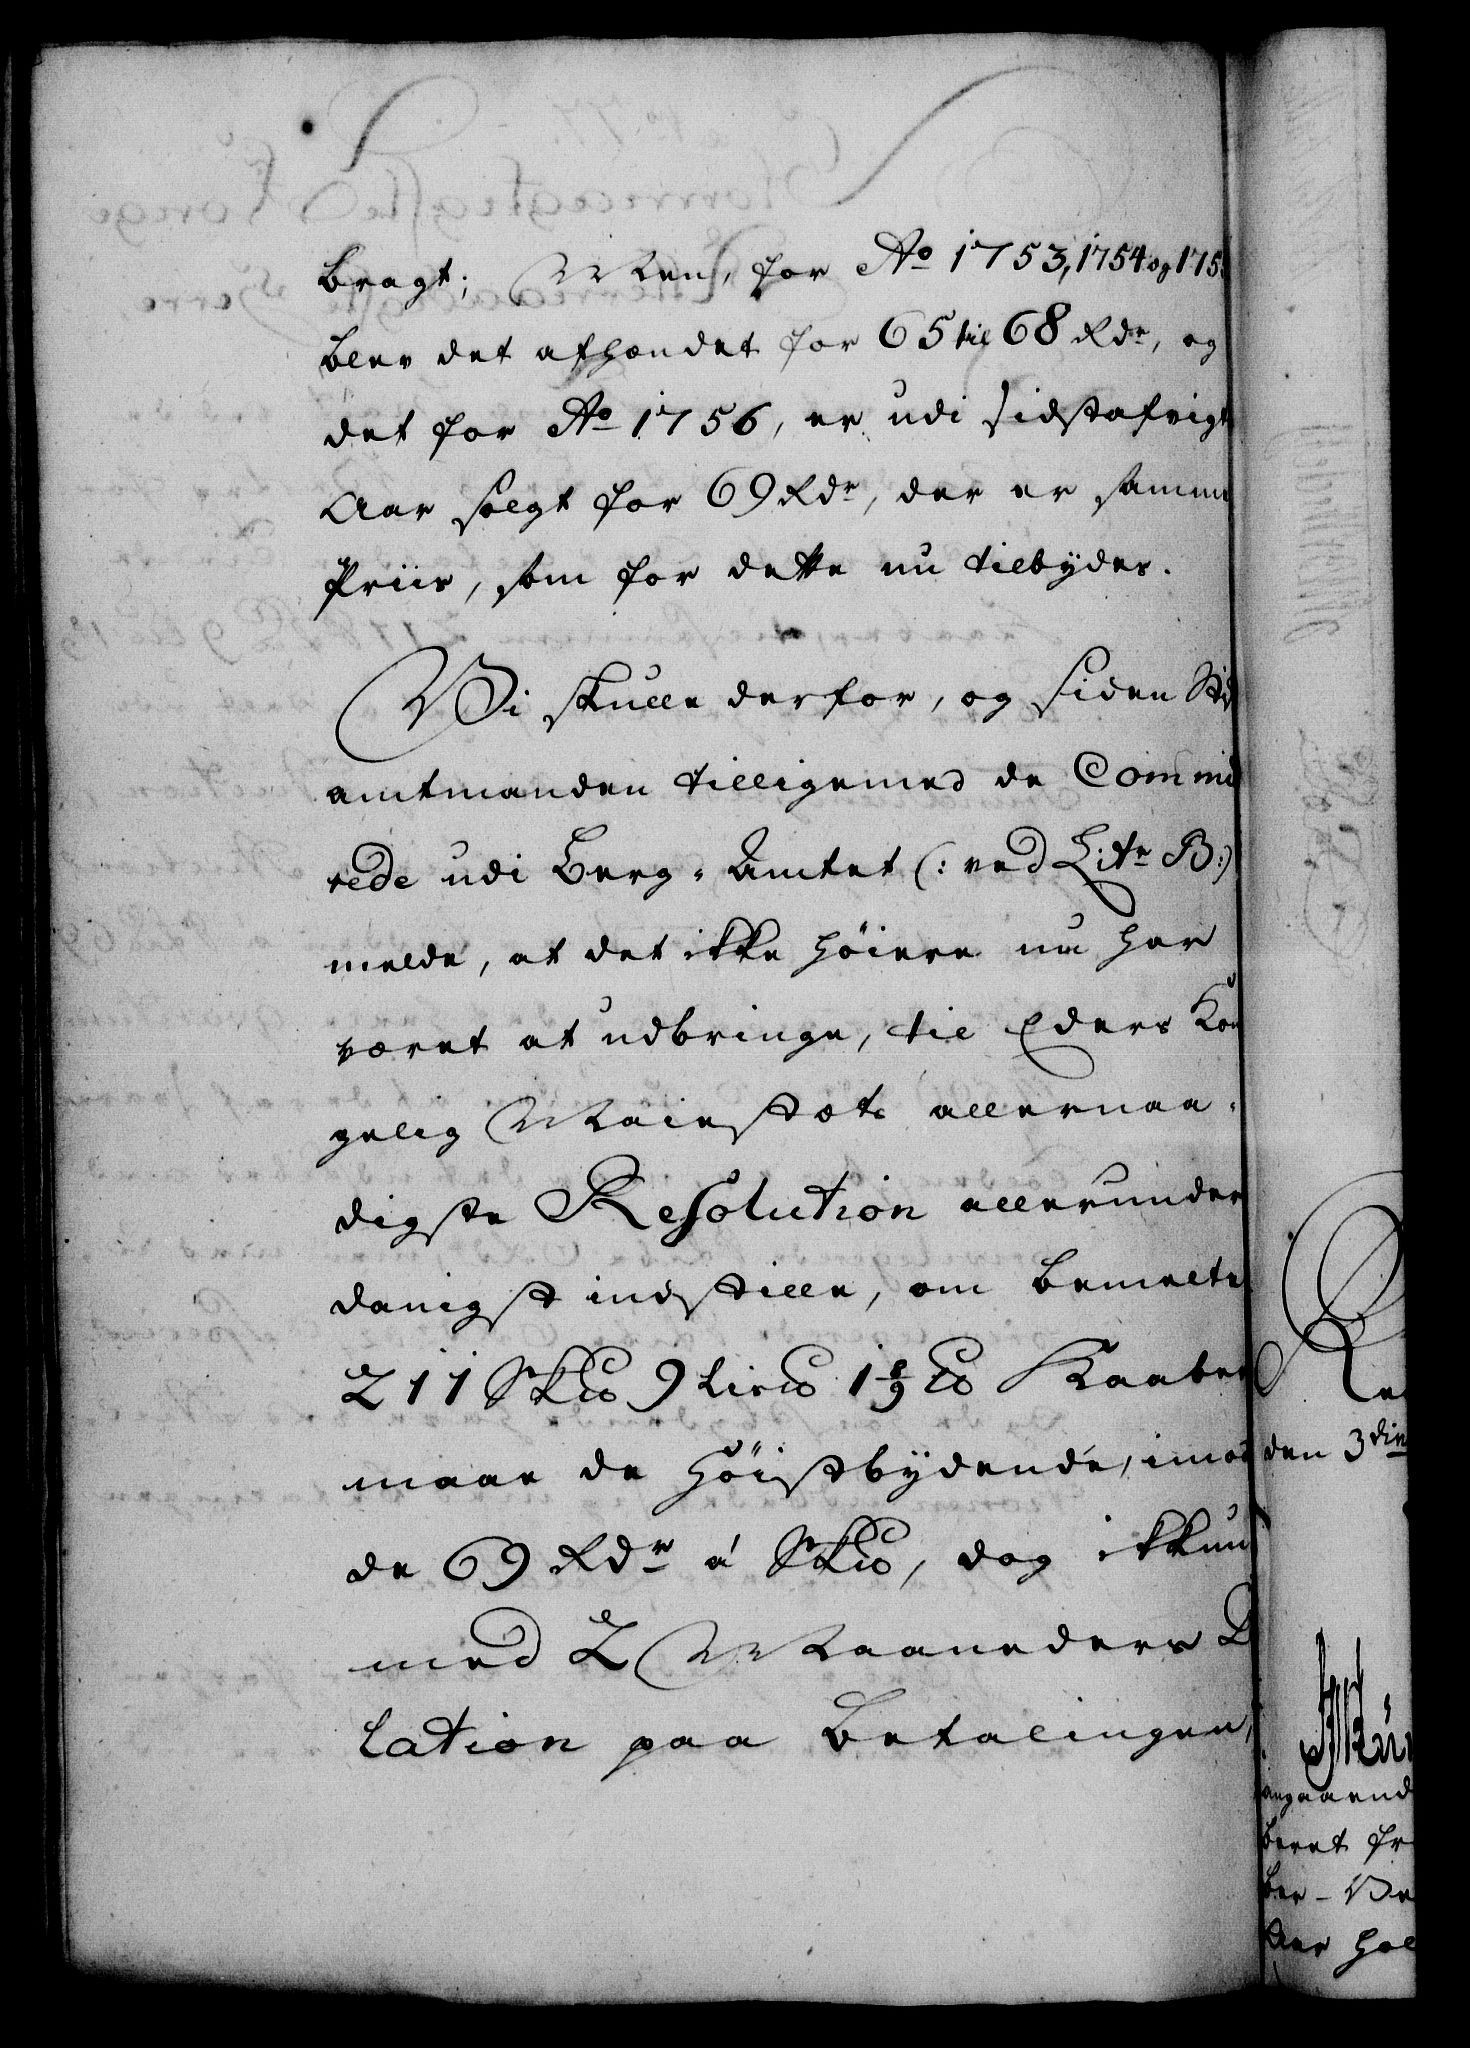 bragt; Men, for Ao 1753, 1754 og 175
blev det afhændet for 65 til 68 Rdr, og
det for Ao 1756, er udi sidstafvigt
Aar solgt for 69 Rdr, der er samme
Priis, som for dette nu tilbydes.
Vi skulle derfor, og siden Sti
amtmanden tilligemed de Commi
rede udi Berg-Amtet (: ved Litr B:)
melde, at det ikke høiere nu har
været at udbringe, til Eders Kon
gelig Maiestæts allernaa-
digste Resolution allerunder
danigst indstille, om bemelte
211 Sk℔ 9 Lis℔ 1 8/9 ℔ Kaaber
maae de Høistbydende, imod
de 69 Rdr á Sk℔, dog ikkun
med 2 Maaneders D
lation paa Betalingen,
den 3din
angaaend
beret fr
ber-Ve
Aar hol